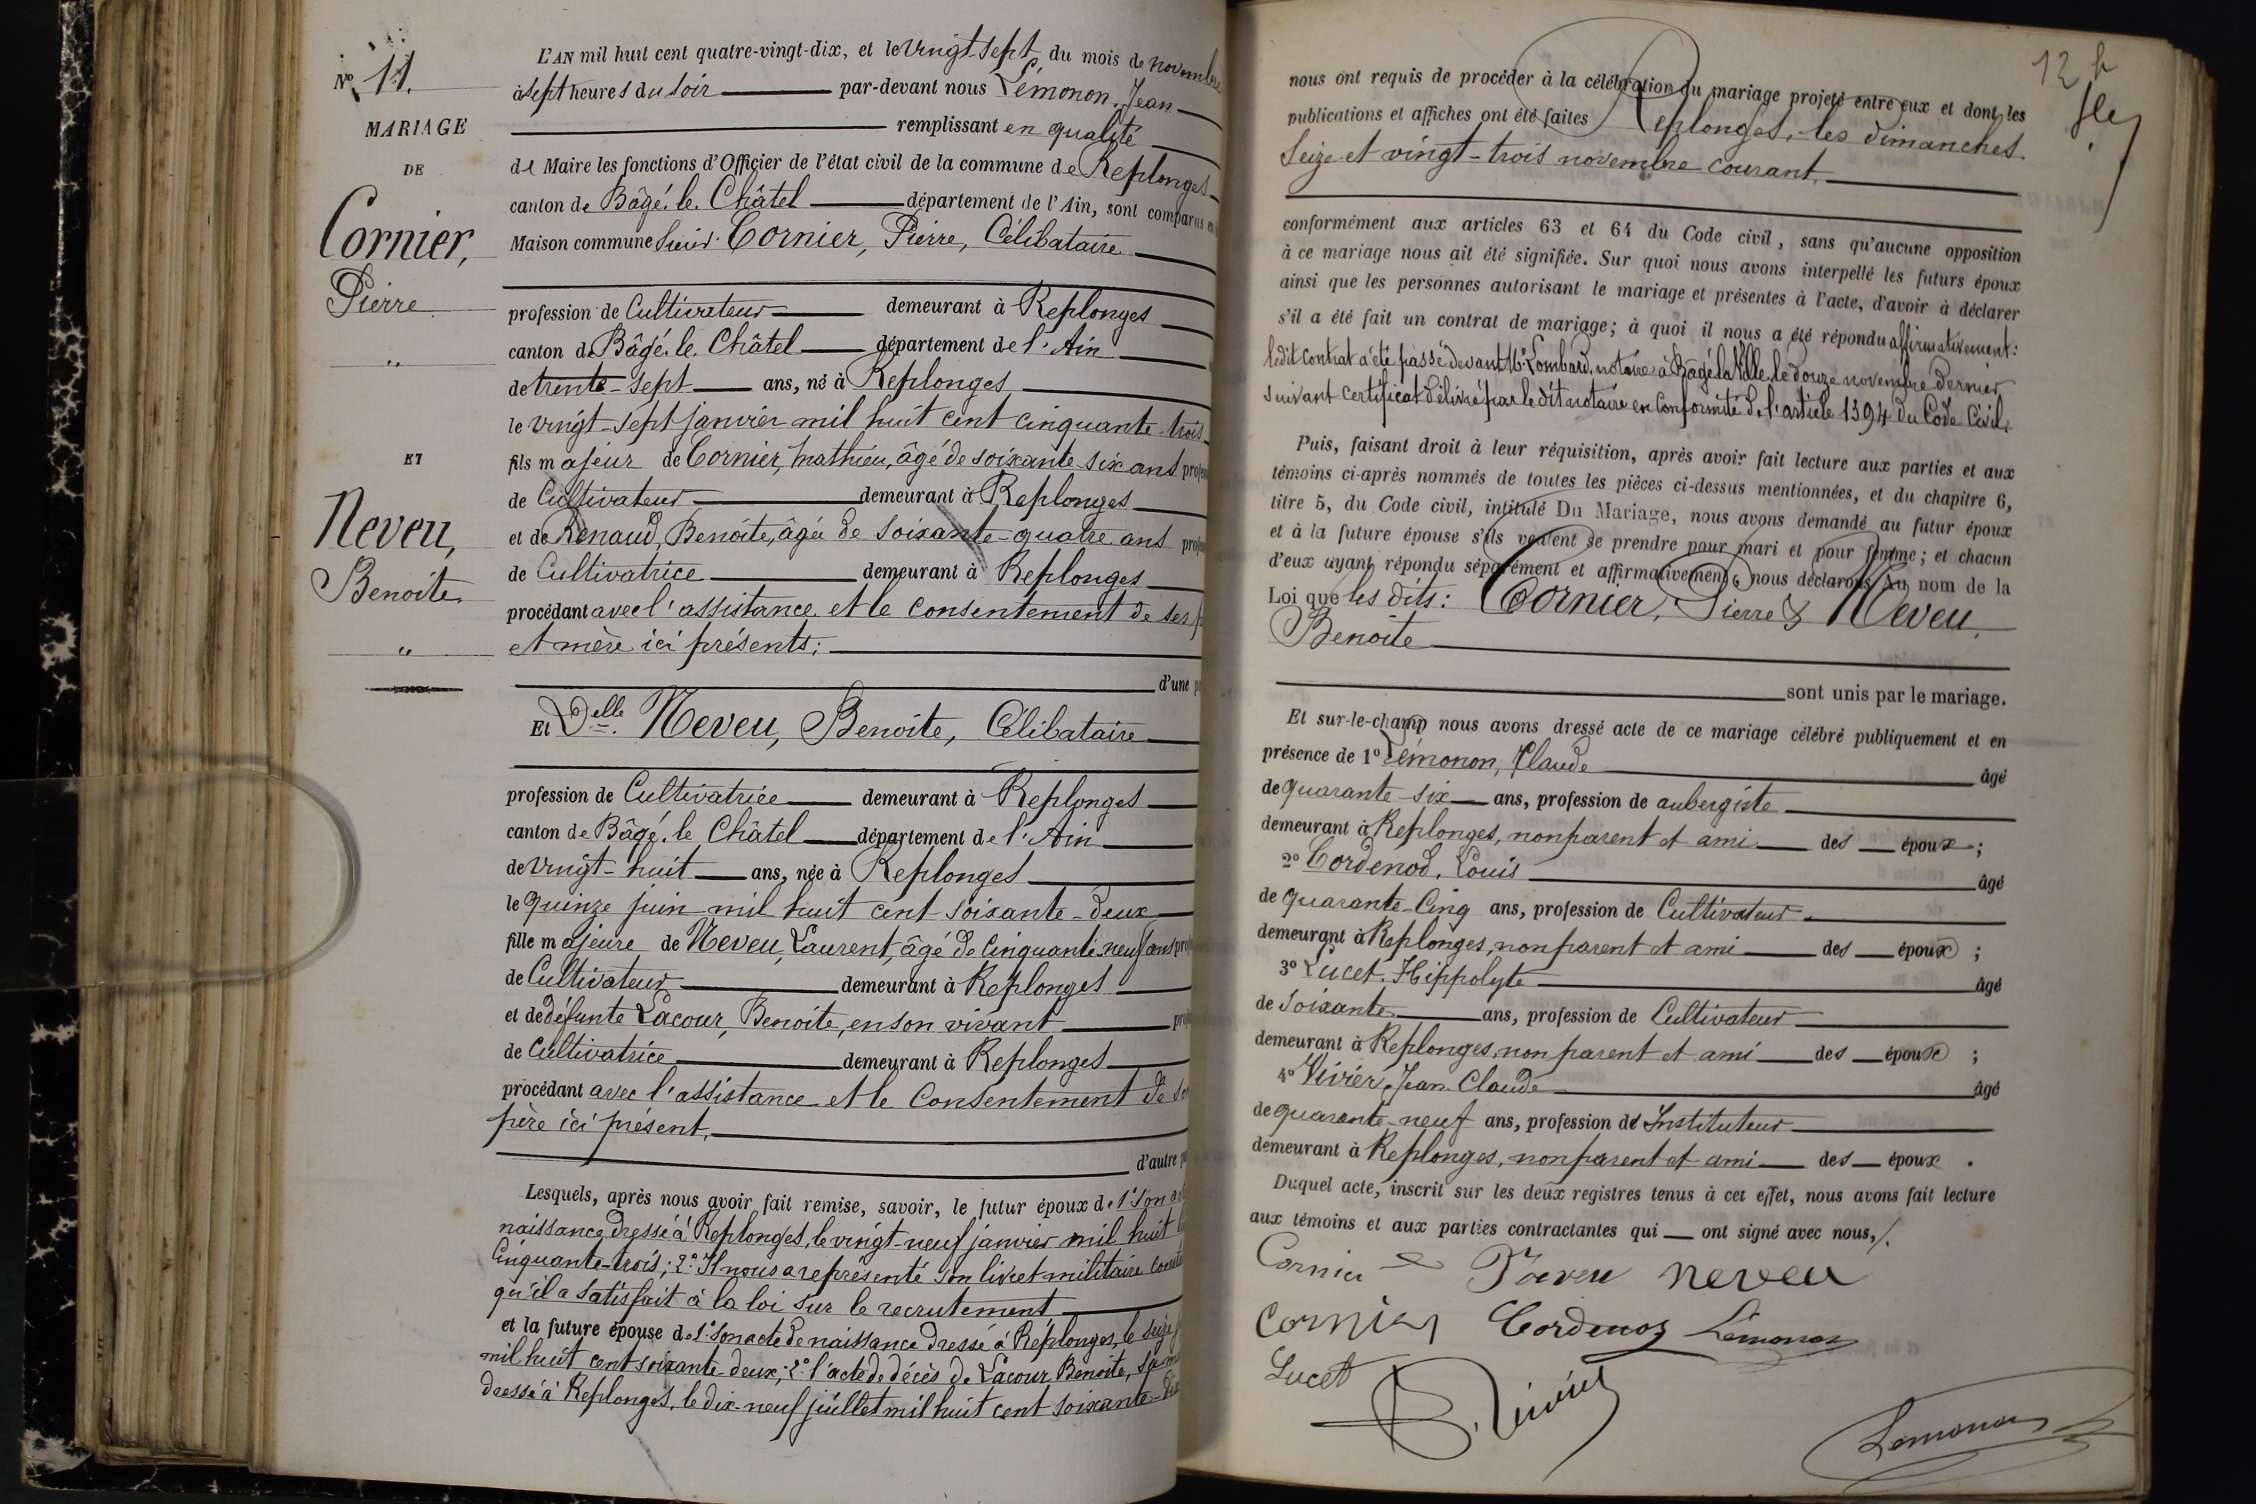 N° 11.
MARIAGE
DE
Cornier,
Pierre
"
ET
Neveu,
Benoite
"
L'AN mil huit cent quatre-vingt-dix, et le vingt-sept du mois de novembre
à sept heures du soir par-devant nous Lémonon, Jean
remplissant en qualité
de Maire les fonctions d'Officier de l'état civil de la commune de Replonges
canton de Bâgé-le-Châtel département de l'Ain, sont comparus en
Maison commune Sieur Cornier, Pierre, Célibataire
profession de Cultivateur demeurant à Replonges
canton de Bâgé-le-Châtel département de l'Ain
de trente-sept ans, né à Replonges
le vingt-sept janvier mil huit cent cinquante-trois
fils majeur de Cornier, Mathieu, âgé de soixante-six ans
de Cultivateur demeurant à Replonges
et de Renaud, Benoite, âgée de soixante-quatre ans
de Cultivatrice demeurant à Replonges
procédant avec l'assistance et le consentement de ses
et mère ici présents;
d'une
Et Delle Neveu, Benoite, Célibataire
profession de Cultivatrice demeurant à Replonges
canton de Bâgé-le-Châtel département de l'Ain
de vingt-huit ans, née à Replonges
le quinze juin mil huit cent soixante-deux
fille majeure de Neveu, Laurent, âgé de cinquante-neuf ans
de Cultivateur demeurant à Replonges
et de défunte Lacour, Benoite, en son vivant
de Cultivatrice demeurant à Replonges
procédant avec l'assistance et le consentement de
père ici présent.
d'autre
Lesquels, après nous avoir fait remise, savoir, le futur époux de 1° Son
naissance dressé à Replonges, le vingt-neuf janvier mil huit
cinquante-trois; 2° Il nous a représenté son livret militaire
qu'il a satisfait à la loi sur le recrutement
et la future épouse de 1° Son acte de naissance dressé à Replonges, le seize
mil huit cent soixante-deux; 2° l'acte de décès de Lacour Benoite, sa
dressé à Replonges, le dix-neuf juillet mil huit cent soixante-
12
nous ont requis de procéder à la célébration du mariage projeté entre eux et dont les
publications et affiches ont été faites Replonges, les dimanches
Seize et vingt-trois novembre courant,
conformément aux articles 63 et 64 du Code civil, sans qu'aucune opposition
à ce mariage nous ait été signifiée. Sur quoi nous avons interpellé les futurs époux
ainsi que les personnes autorisant le mariage et présentes à l'acte, d'avoir à déclarer
s'il a été fait un contrat de mariage; à quoi il nous a été répondu affirmativement:
ledit contrat a été passé devant Me Lombard, notaire à Bâgé-la-Ville, le douze novembre dernier
suivant certificat délivré par le dit notaire en conformité de l'article 1394 du Code Civil.
Puis, faisant droit à leur réquisition, après avoir fait lecture aux parties et aux
témoins ci-après nommés de toutes les pièces ci-dessus mentionnées, et du chapitre 6,
titre 5, du Code civil, intitulé Du Mariage, nous avons demandé au futur époux
et à la future épouse s'ils veulent se prendre pour mari et pour femme; et chacun
d'eux ayant répondu séparément et affirmativement, nous déclarons au nom de la
Loi que les dits: Cornier, Pierre & Neveu,
Benoite
sont unis par le mariage.
Et sur-le-champ nous avons dressé acte de ce mariage célébré publiquement et en
présence de 1° Lémonon, Claude âgé
de quarante-six ans, profession de aubergiste
demeurant à Replonges, non parent et ami des époux;
2° Cordenod, Louis âgé
de quarante-cinq ans, profession de Cultivateur
demeurant à Replonges, non parent et ami des époux;
3° Lucet, Hippolyte âgé
de soixante ans, profession de Cultivateur
demeurant à Replonges, non parent et ami des époux;
4° Vivier, Jean-Claude âgé
de quarante-neuf ans, profession de Instituteur
demeurant à Replonges, non parent et ami des époux.
Duquel acte, inscrit sur les deux registres tenus à cet effet, nous avons fait lecture
aux témoins et aux parties contractantes qui ont signé avec nous,
Cornier neveu
Cornier Cordenod Lémonon
Lucet Vivier
Lémonon